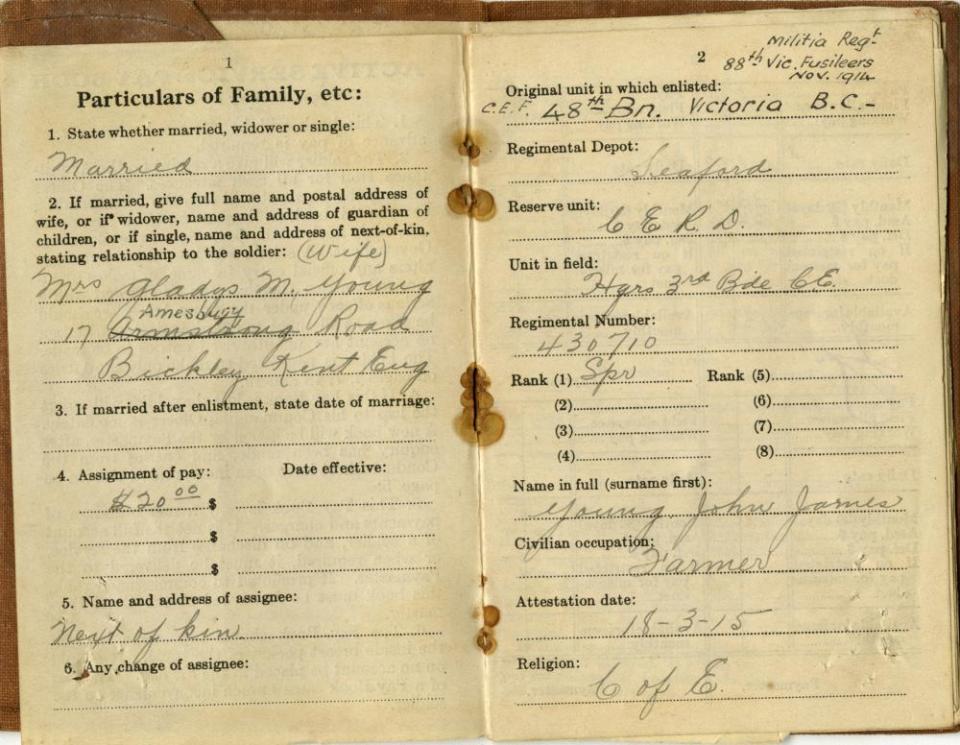 1
Particulars of Family, etc:
1. State whether married, widower or single:
Married
2. If married, give full name and postal address of
wife, or if widower, name and address of guardian of
children, or if single, name and address of next-of-kin,
stating relationship to the soldier: (Wife)
Mrs Gladys M. Young
Amesbury
17 Armstrong Road
Bickley Kent Eng
3. If married after enlistment, state date of marriage:
4. Assignment of pay: Date effective:
$20 00 $
$
$
5. Name and address of assignee:
Next of kin
6. Any change of assignee:
2
Militia Regt
88th Vic. Fusileers
Nov. 1914
Original unit in which enlisted:
C.E.F. 48th Bn. Victoria B.C.-
Regimental Depot:
Seaford
Reserve unit:
C E R D.
Unit in field:
Hqrs 3rd Bde C.E.
Regimental Number:
430710
Rank (1) Spr Rank (5)
(2) (6)
(3) (7)
(4) (8)
Name in full (surname first):
Young, John James
Civilian occupation:
Farmer
Attestation date:
18-3-15
Religion:
C of E.